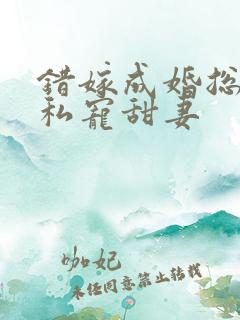 错嫁成婚总
私宠甜妻
咖妃
未经同意禁止转载